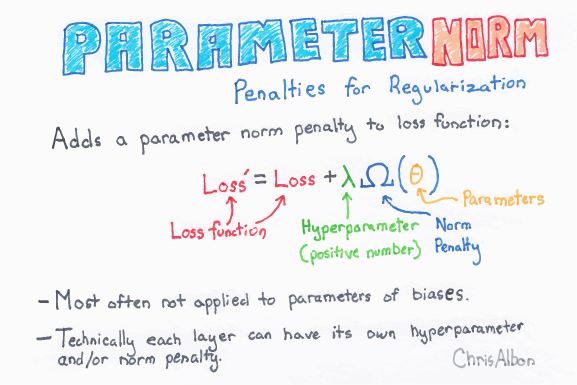 PARAMETER NORM
Penalties for Regularization
Adds a parameter norm penalty to loss function:
Loss´ = Loss + λΩ(θ)
Parameters
Loss function
Hyperparameter
(positive number)
Norm
Penalty
- Most often not applied to parameters of biases.
- Technically each layer can have its own hyperparameter
and/or norm penalty.
ChrisAlbon